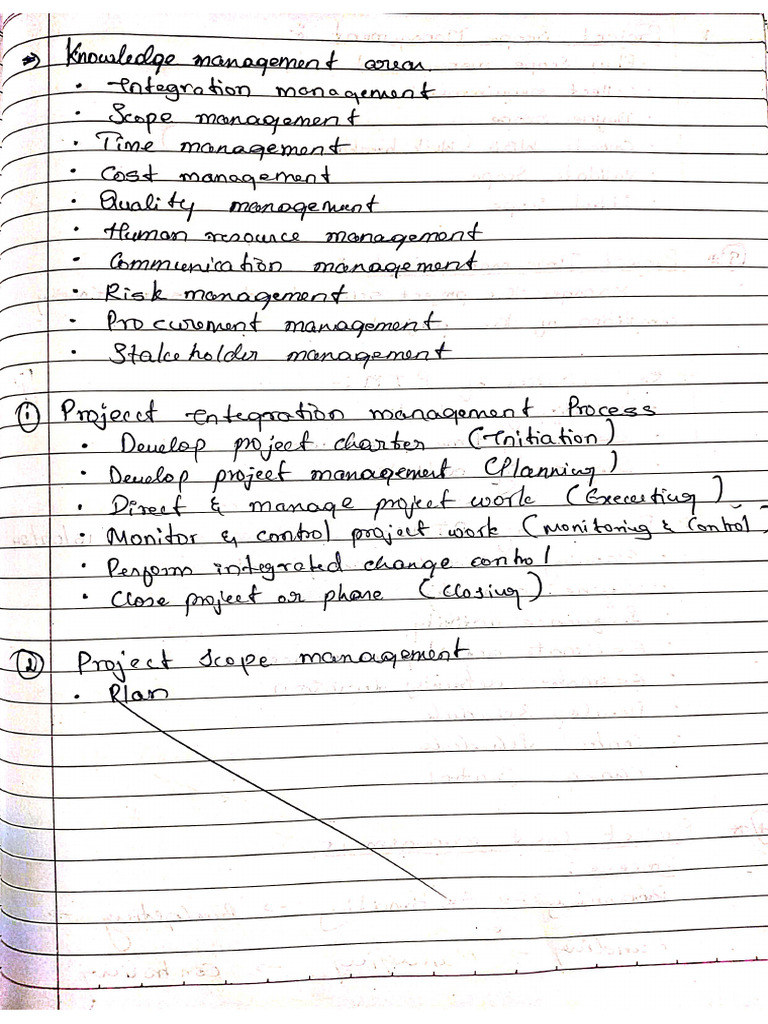 ⇒ Knowledge management areas
• Integration management
• Scope management
• Time management
• Cost management
• Quality management
• Human resource management
• Communication management
• Risk management
• Procurement management
• Stakeholder management
① Projecct Integration management Process
• Develop project charter (Initiation)
• Develop project management (Planning)
• Direct & manage project work (Executing)
• Monitor & control project work (Monitoring & Control)
• Perform integrated change control
• Close project or phase (Closing)
② Project Scope management
• Plan